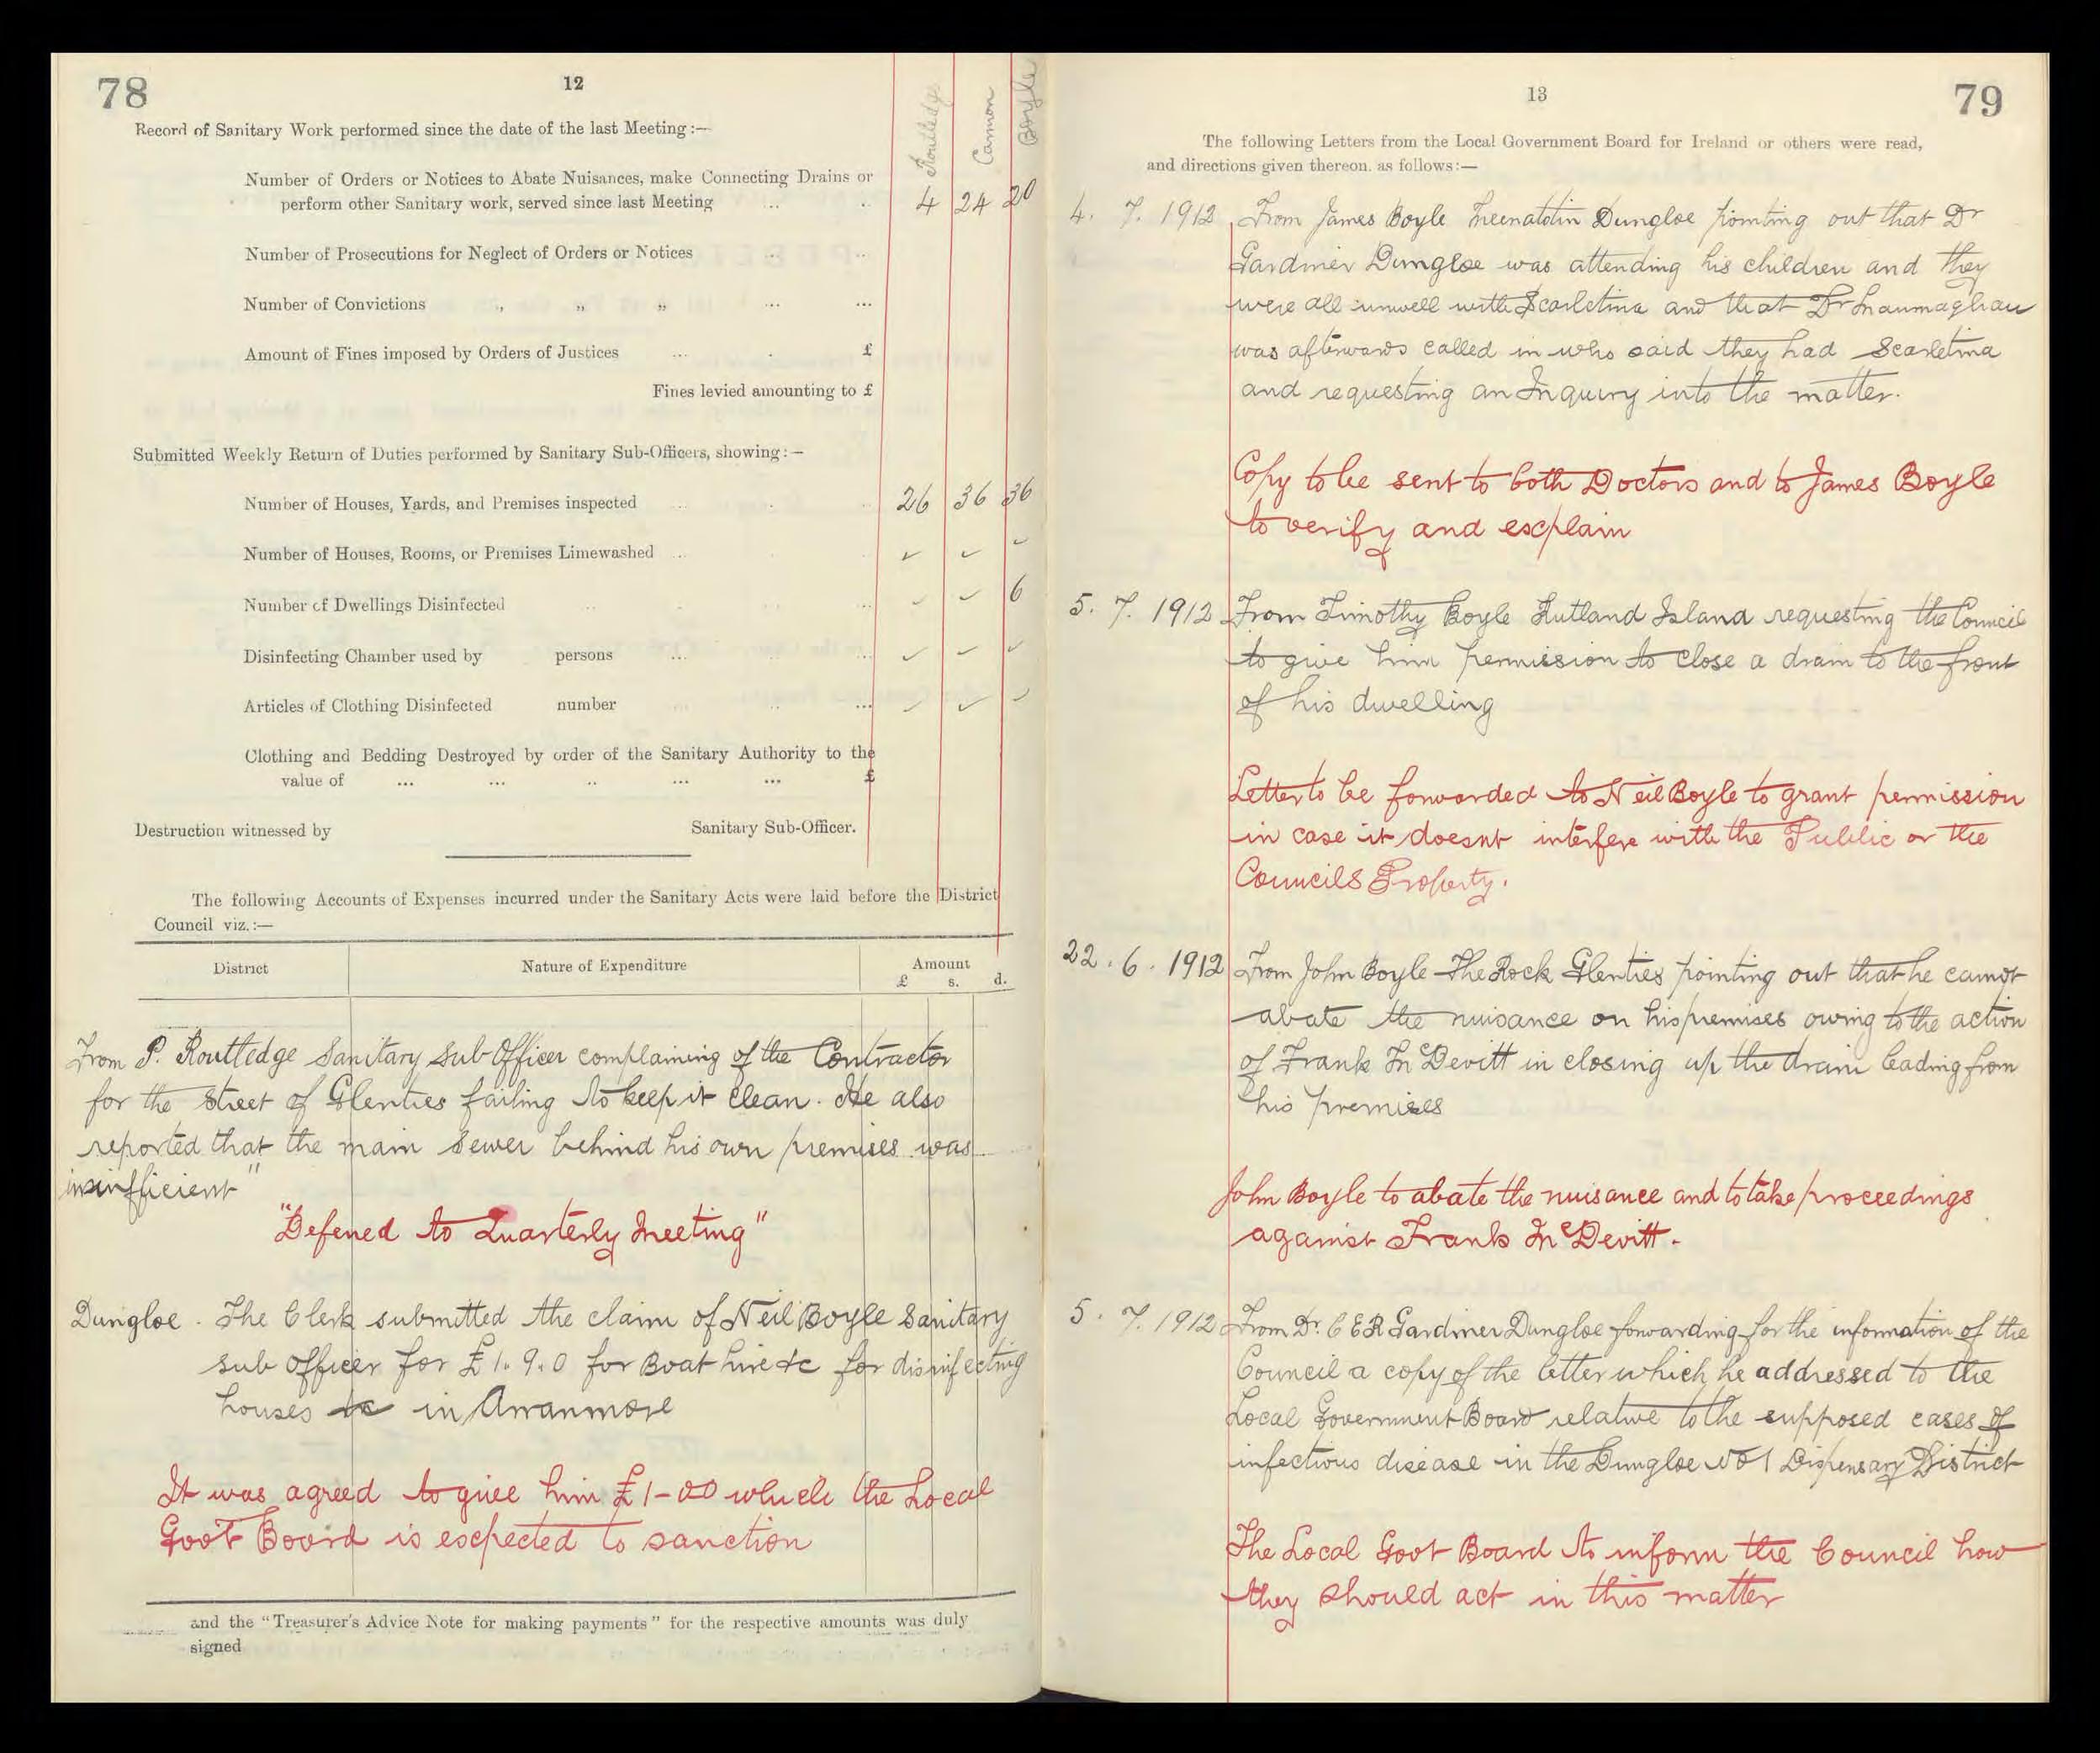 78
12
Routledge
Cannon
Boyle
Record of Sanitary Work performed since the date of the last Meeting :—
Number of Orders or Notices to Abate Nuisances, make Connecting Drains or
perform other Sanitary work, served since last Meeting ... .. 4 24 20
Number of Prosecutions for Neglect of Orders or Notices ... ..
Number of Convictions ,, ,, ,, ... ...
Amount of Fines imposed by Orders of Justices ... . £
Fines levied amounting to £
Submitted Weekly Return of Duties performed by Sanitary Sub-Officers, showing:—
Number of Houses, Yards, and Premises inspected 26 36 36
Number of Houses, Rooms, or Premises Limewashed .. ✓ ✓ ✓
Number of Dwellings Disinfected ✓ ✓ 6
Disinfecting Chamber used by persons ... ✓ ✓ ✓
Articles of Clothing Disinfected number ... ✓ ✓ ✓
Clothing and Bedding Destroyed by order of the Sanitary Authority to the
value of ... ... .. ... ... £
Destruction witnessed by Sanitary Sub-Officer.
The following Accounts of Expenses incurred under the Sanitary Acts were laid before the District
Council viz. :—
District Nature of Expenditure Amount
£ s. d.
From P. Routledge Sanitary Sub Officer complaining of the Contractor
for the Street of Glenties failing to keep it clean. He also
reported that the main sewer behind his own premises was
insufficient"
"Deferred to Quarterly Meeting"
Dungloe. The Clerk submitted the claim of Neil Boyle Sanitary
sub officer for £1.9.0 for Boat hire &c for disinfecting
houses &c in Arranmore
It was agreed to give him £1-00 which the Local
Govt Board is expected to sanction
and the "Treasurer's Advice Note for making payments" for the respective amounts was duly
signed
79
13
The following Letters from the Local Government Board for Ireland or others were read,
and directions given thereon. as follows:—
4. 7. 1912 From James Boyle Dungloe pointing out that Dr
Gardiner Dungloe was attending his children and they
were all unwell with Scarletina and that Dr
was afterwards called in who said they had Scarletina
and requesting an Inquiry into the matter.
Copy to be sent to both Doctors and to James Boyle
to verify and explain
5. 7. 1912 From Timothy Boyle Rutland Island requesting the Council
to give him permission to close a drain to the front
of his dwelling
Letter to be forwarded to Neil Boyle to grant permission
in case it doesnt interfere with the Public or the
Councils Property.
22. 6. 1912 From John Boyle The Rock Glenties pointing out that he cannot
abate the nuisance on his premises owing to the action
of Frank McDevitt in closing up the drain leading from
his premises
John Boyle to abate the nuisance and to take proceedings
against Frank McDevitt.
5. 7. 1912 From Dr. C E R Gardiner Dungloe forwarding for the information of the
Council a copy of the letter which he addressed to the
Local Government Board relative to the supposed cases of
infectious disease in the Dungloe No 1 Dispensary District
The Local Govt Board to inform the Council how
they should act in this matter